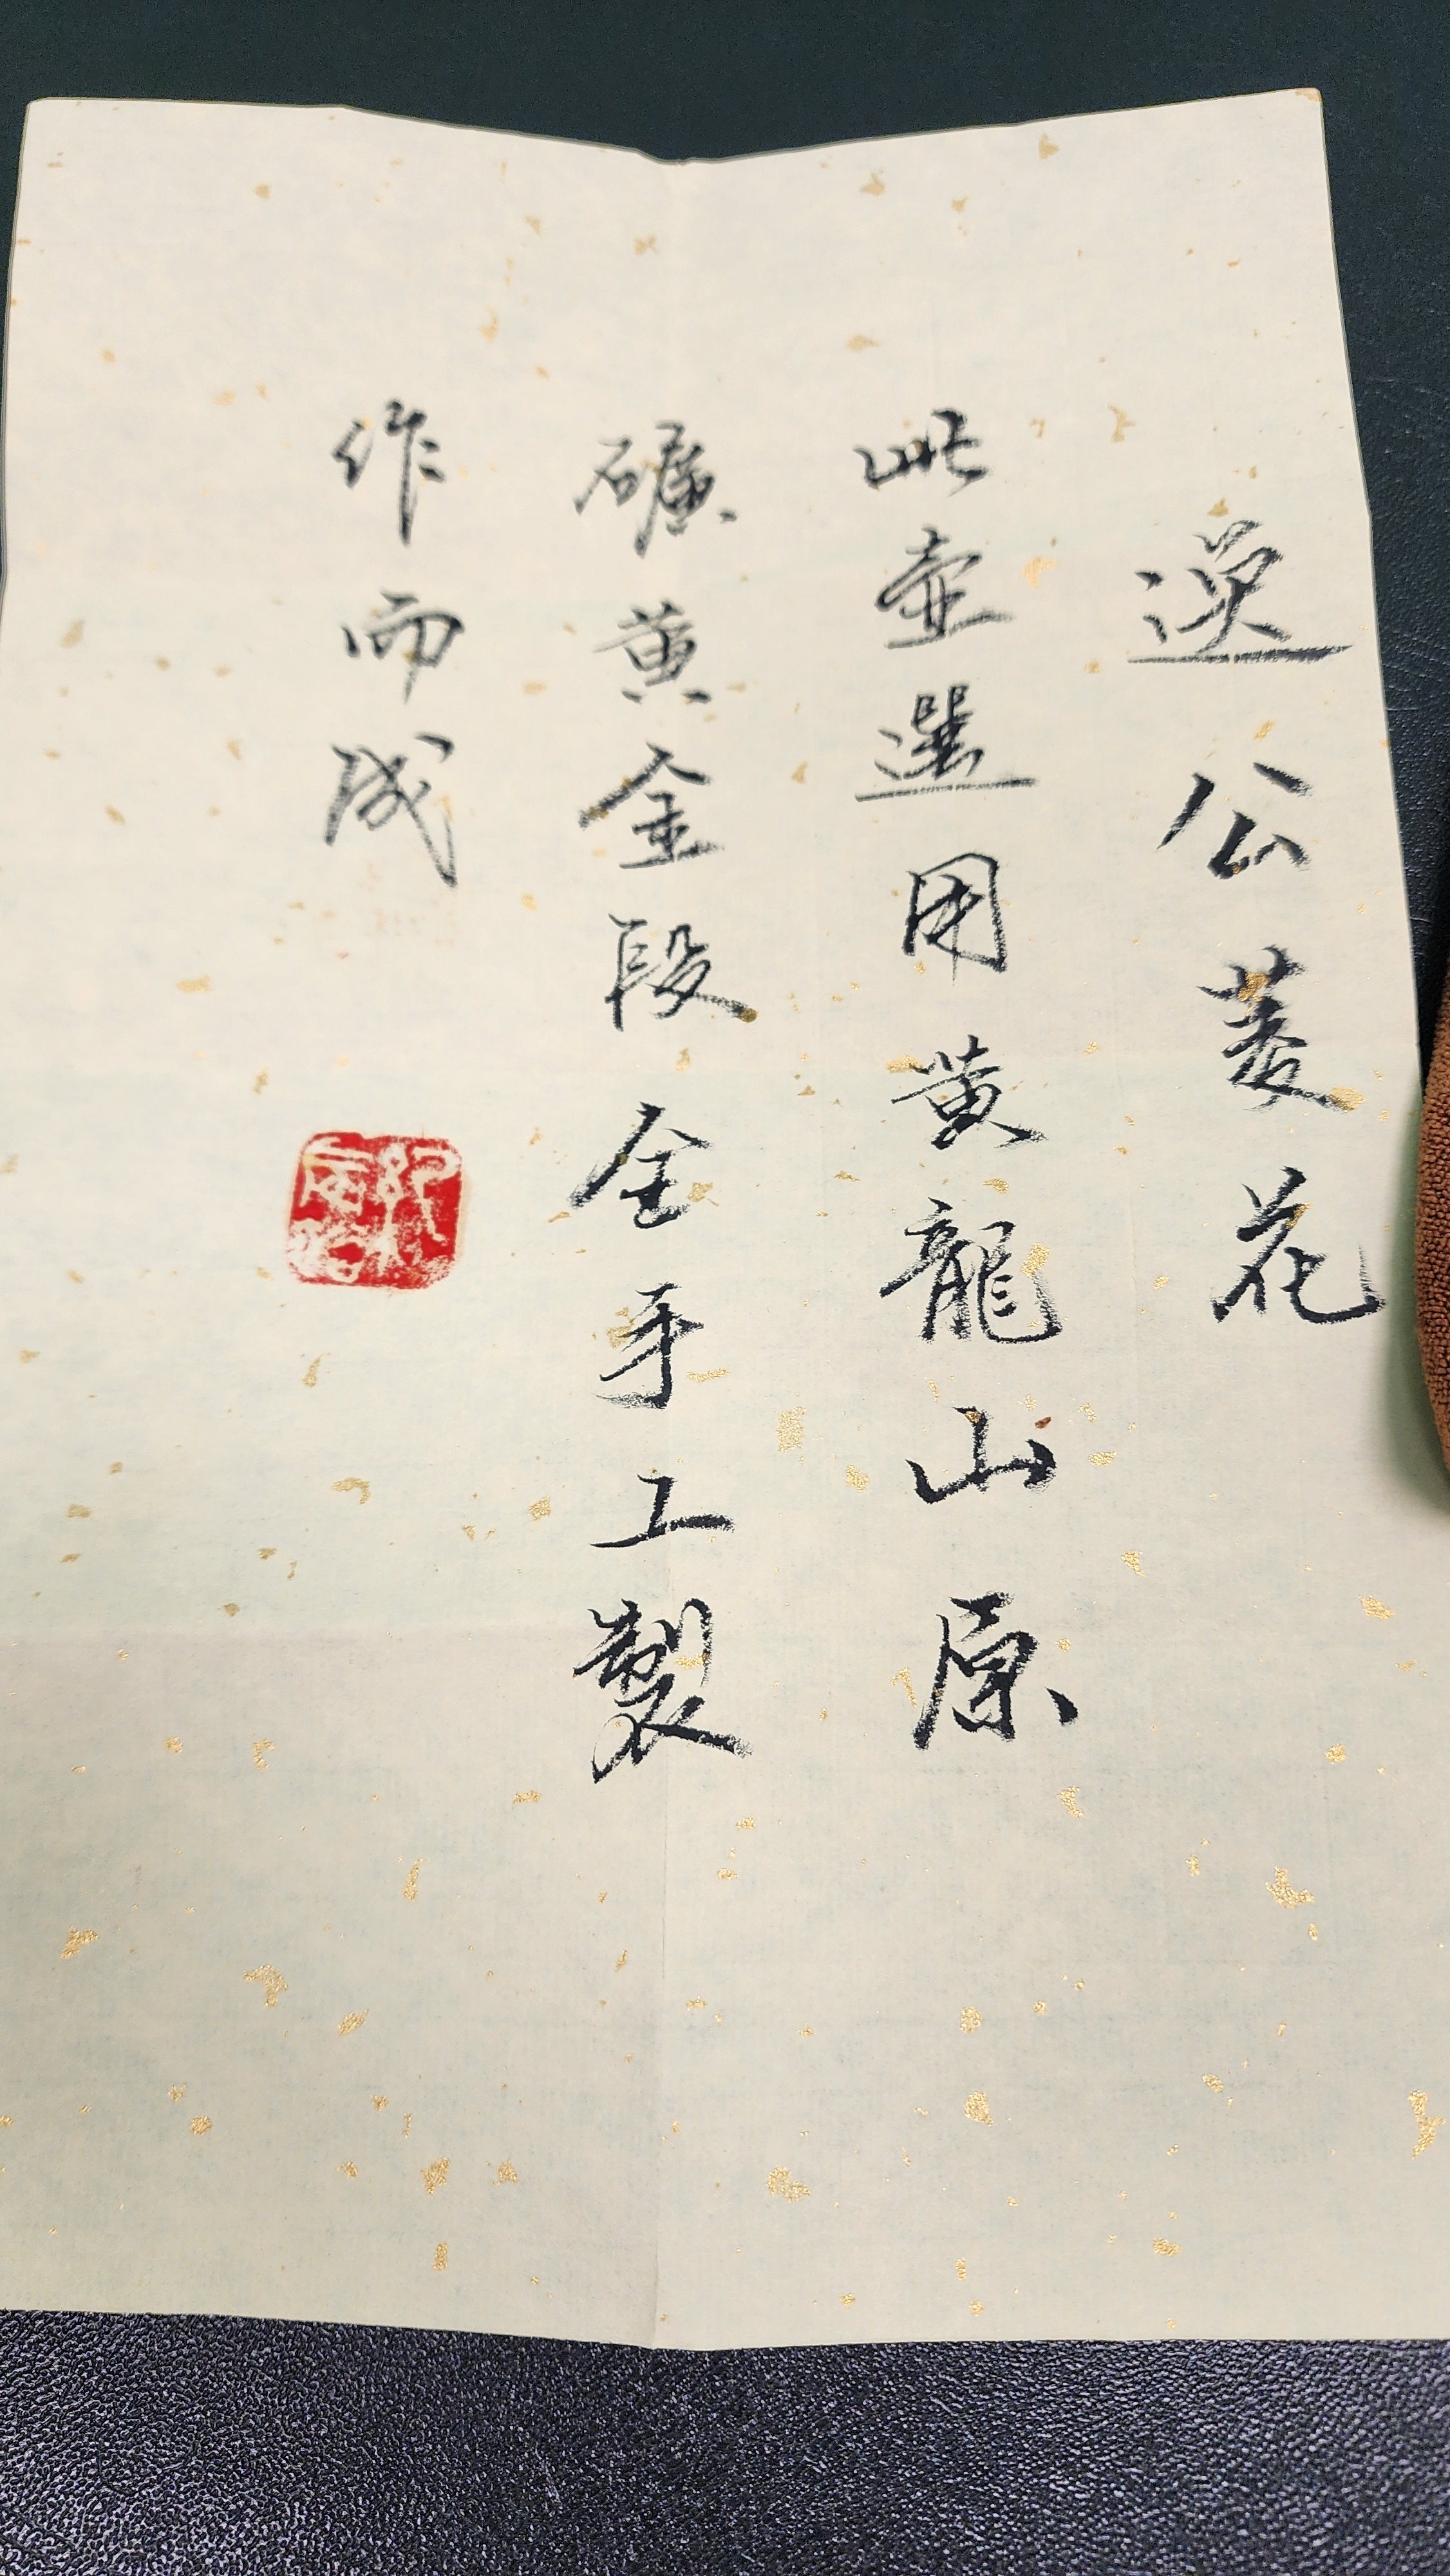 逸公菱花
此壺選用黄龍山原
礦黄金段全手工製
作而成